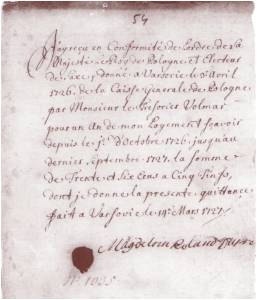 54
J'ay reçu en Conformité de l'ordre de Sa
Majesté le Roy de Pologne et Electeur
de Saxe, donné a Varsovie le Avril
1726. de la Caisse Generale de Pologne
par Monsieur le Tresorier Volmar
pour un An de mon Logement Sçavoir
depuis le 1r. d'Octobre 1726. jusqu'au
dernier Septembre 1727. la somme
de Trente et Six Ecus a Cinq
dont je donne la presente quittance
fait a Varsovie le 14e Mars 1727.
Magdelein Roland
No. 1035